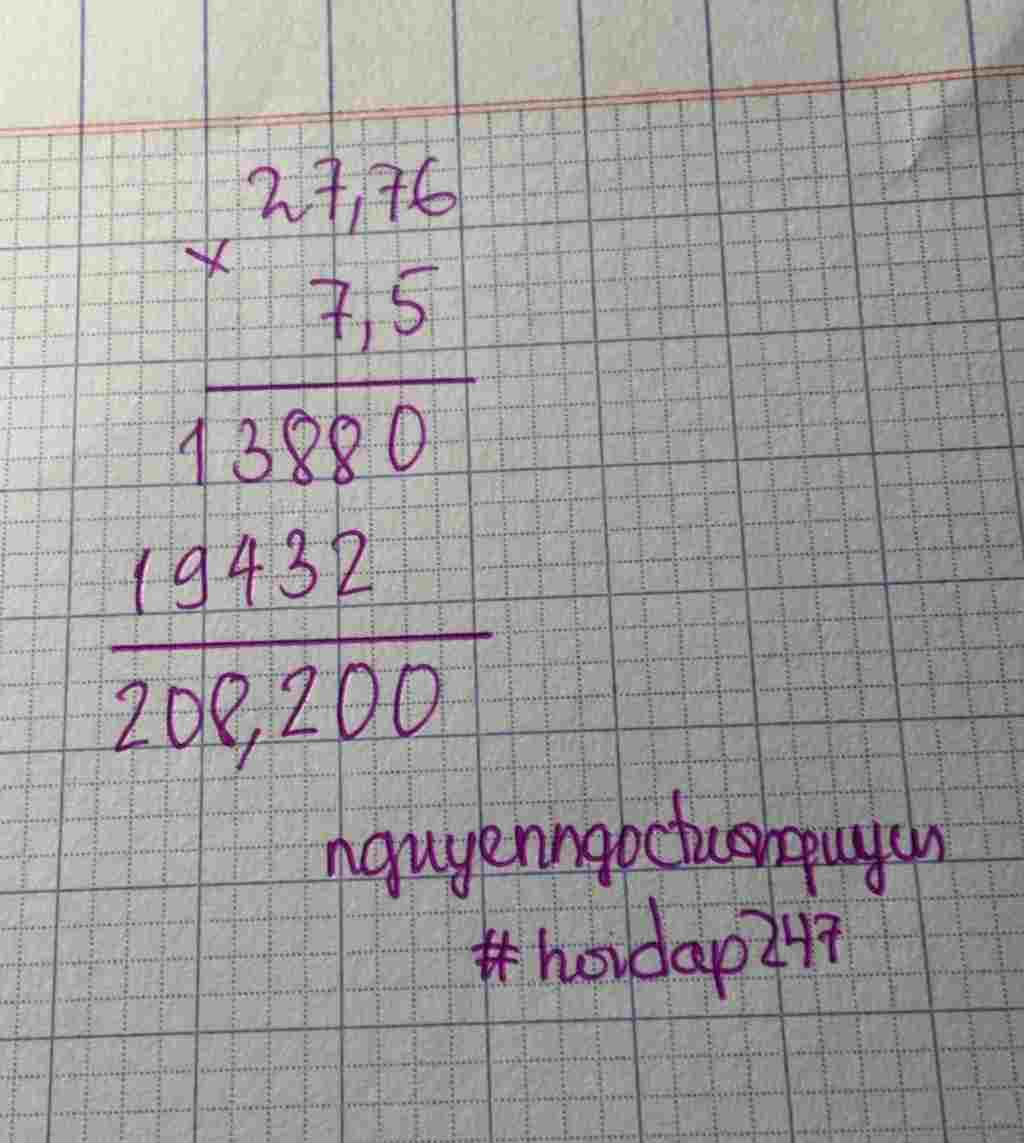 27,76
×
7,5
13880
19432
208,200
#hoidap247